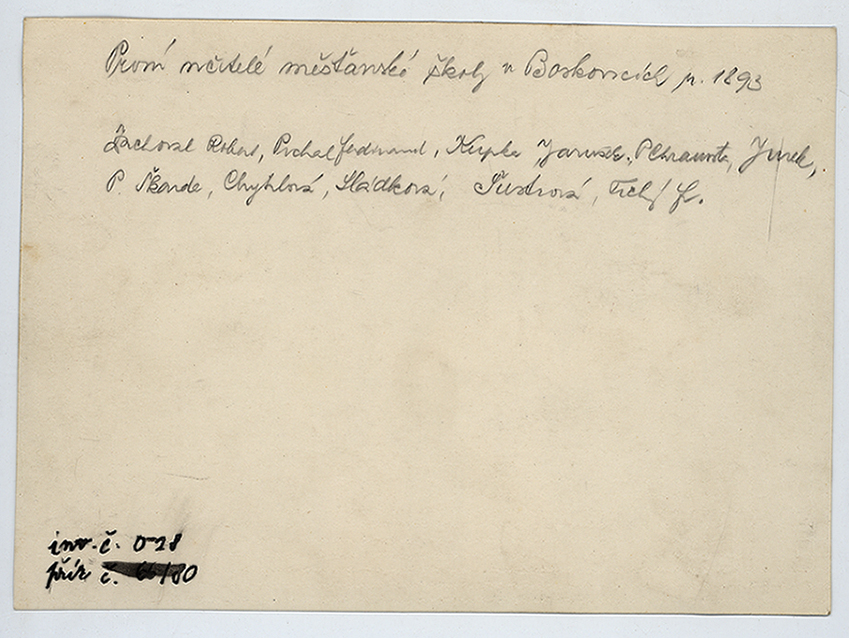 První učitelé měšťanské školy v Boskovicích r. 1893
Robert, Prchal Ferdinand, Kupka Jarušek, P Chramosta, Jurek,
P. Škorda, Chytilová, Sládková, Šustrová, Tichý F.
inv. č. 0-28
přír č. 66/80